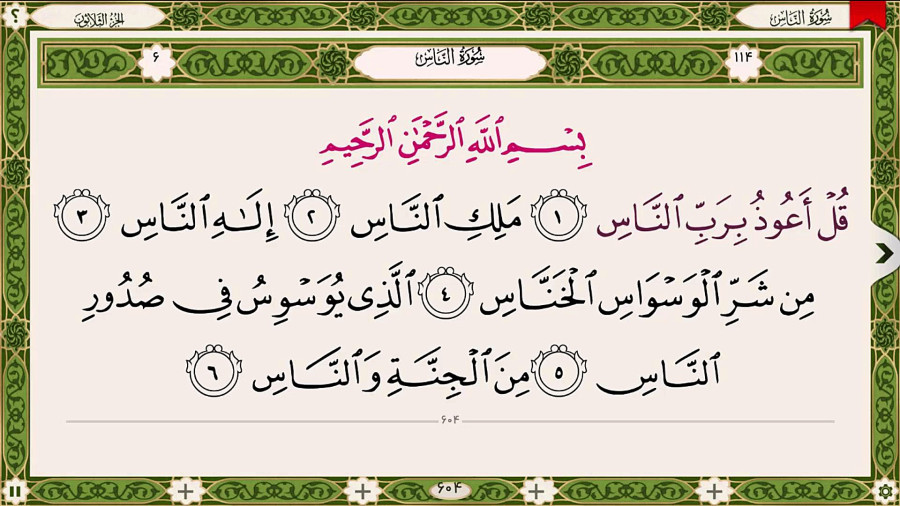 سُورَةُ النَّاسِ
الجُزءُ الثَّلَاثُونَ
؟
١١٤
سُورَةُ النَّاسِ
۶
بِسْمِ ٱللَّهِ ٱلرَّحْمَٰنِ ٱلرَّحِيمِ
قُلْ أَعُوذُ بِرَبِّ ٱلنَّاسِ ١ مَلِكِ ٱلنَّاسِ ٢ إِلَٰهِ ٱلنَّاسِ ٣
مِن شَرِّ ٱلْوَسْوَاسِ ٱلْخَنَّاسِ ٤ ٱلَّذِى يُوَسْوِسُ فِى صُدُورِ
ٱلنَّاسِ ٥ مِنَ ٱلْجِنَّةِ وَٱلنَّاسِ ٦
۶۰۴
۶۰۴